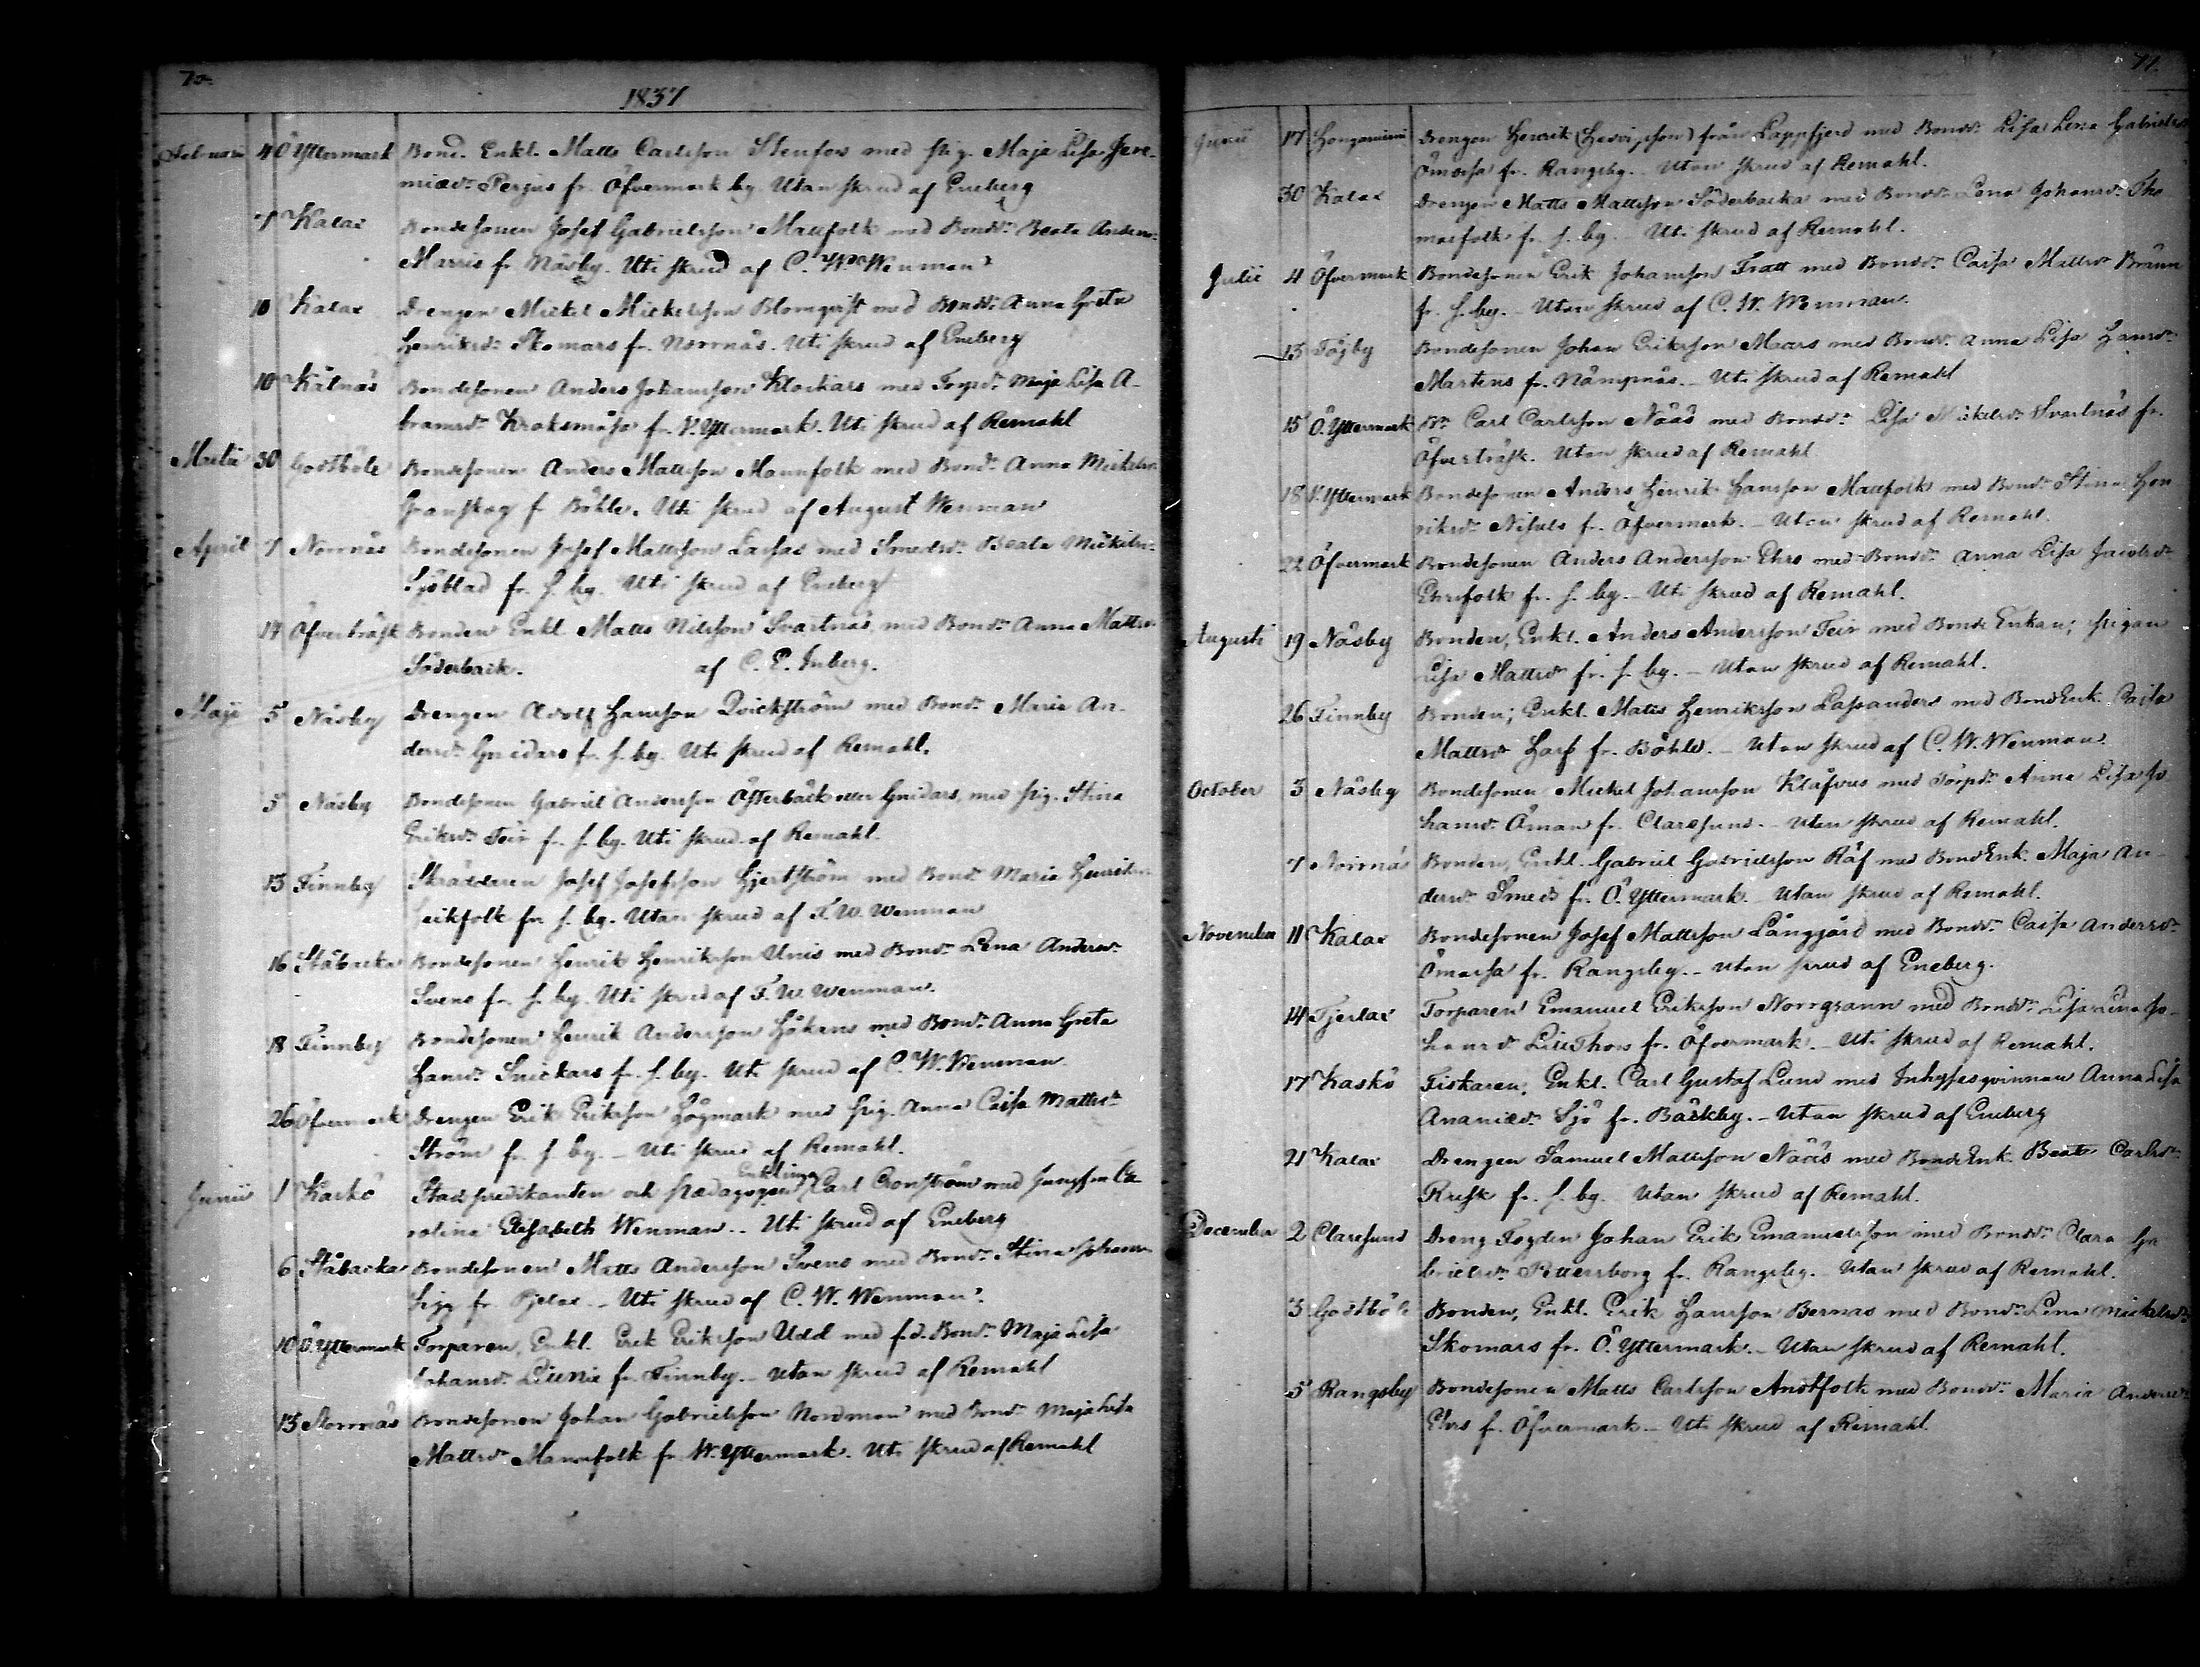 70.
1837
Februarii 4 Ö Yttermark Bond. Enkl. Matts Carlsson Stenfors med pig. Maja Lisa Jere-
miæd:r Perjus fr. Öfvermark by. Utan skrud af Eneberg
7 Kalax Bondesonen Josef Gabrielsson Mattfolk med Bond:r Beata Anders:
Marris fr Näsby. Uti skrud af C. W. Wenman
10 Kalax Drengen Mickel Mickelsson Blomqvist med Bondr: Anna Greta
Henriksd:r Skomars fr. Norrnäs. Uti skrud af Eneberg
10 Kåtnäs Bondesonen Anders Johansson Klockars med Torpd:r Maja Lisa A-
bramsd:r Kroksmåsa fr. V. Yttermark. Uti skrud af Remahl
Martii 30 Godtböle Bondesonen Anders Mattsson Mannfolk med Bond:r Anna Mickelsd:r
Granskog f Böhle. Uti skrud af August Wenman
April 7 Norrnäs Bondesonen Josef Mattsson Lassas med Smedsd:r Beata Mickelsd:
Sjöblad fr. s. by. Uti skrud af Eneberg
14 Öfverträsk Bonden Enkl. Matts Nilsson Svartnäs, med Bond:r Anna Mattsd:r
Söderback. af C. E. Inberg.
Maji 5 Näsby Drengen Adolf Hansson Qvickström med Bond:r Maria An-
dersd:r Gnidars fr. s. by. Uti skrud af Remahl.
5 Näsby Bondesonen Gabriel Andersson Österback eller Gnidars, med pig. Stina
Eriksd:r Teir fr. s. by. Uti skrud af Remahl.
13 Finnby Skräddaren Josef Josefsson Hjertström med Bond:r Maria Henriksd:
fr. s. by. Utan skrud af F. W. Wenman
16 Ståbacka Bondesonen Henrik Henriksson Unis med Bond:r Lena Andersd:r
Svens fr. s. by. Uti skrud af F. W. Wenman.
18 Finnby Bondesonen Henrik Andersson Håkans med Bond:r Anna Greta
Hansd:r Snickars fr. s. by. Uti skrud af C. W. Wenman
26 Öfvermark Drengen Erik Eriksson Högmark med pig. Anna Caisa Mattsd:r
Ström fr. s by. – Uti skrud af Remahl.
Enklingen
Junii 1 Kaskö Stadspredikanten och Pædagogen Carl Cronström med Jungfru Ca-
rolina Elisabeth Wenman. – Uti skrud af Eneberg
6 Ståbacka Bondesonen Matts Andersson Svens med Bond:r Stina Johans
Sigg fr Pjelax. – Uti skrud af C. W. Wenman.
10 Ö. Yttermark Torparen, Enkl. Erik Eriksson Udd med f.d. Bond:r Maja Lisa
Johansd:r Lillnix fr. Finnby. – Utan skrud af Remahl
13 Norrnäs Bondesonen Johan Gabrielsson Nordman med Bond:r Maja Lisa
Mattsd:r Mannfolk fr. W. Yttermark. Uti skrud af Remahl
71.
Junii 17 Drengen Henrik från Lappfjerd med Bondr: Lisa Lena Gabrielsd
Ömossa fr. Rangsby. – Utan skrud af Remahl.
30 Kalax Drengen Matts Mattsson Söderbacka med Bondr: Lena Johansd:r Tho-
masfolk fr. s. by. – Uti skrud af Remahl.
Julii 4 Öfvermark Bondesonen Erik Johansson Fratt med Bondr: Caisa Mattsdr Bränn
fr. s. by. – Utan skrud af C. W. Wenman.
13 Töjby Bondesonen Johan Eriksson Mars med Bondr: Anna Lisa Hansd:r
Martens fr. Nämpnäs. – Uti skrud af Remahl
15 Ö. Yttermark Dr. Carl Carlsson Nääs med Bondr: Lisa Mickelsd:r Svartnäs fr.
Öfverträsk. Utan skrud af Remahl
18 V. Yttermark Bondesonen Anders Henrik Hansson Mattfolk med Bondr: Stina Hen-
riksd:r Nisula fr. Öfvermark. – Utan skrud af Remahl.
22 Öfvermark Bondesonen Anders Andersson Ehrs med Bondr: Anna Lisa Jacobsd:r
Ehrsfolk fr. s. by. – Uti skrud af Remahl.
Augusti 19 Näsby Bonden, Enkl. Anders Andersson Teir med Bonde Enkan; pigan
Lisa Mattsdr fr. s. by. – Utan skrud af Remahl.
26 Finnby Bonden; Enkl. Matts Henriksson Lassanders med BondEnk. Caisa
Mattsdr Harf fr. Böhle. – Utan skrud af C. W. Wenman.
October 3 Näsby Bondesonen Mickel Johansson Klåfvus med Torpd:r Anna Lisa Jo-
hansd:r Öman fr. Claresund. – Utan skrud af Remahl.
7 Norrnäs Bonden, Enkl. Gabriel Gabrielsson Räf med BondEnk. Maja An-
dersd:r Smeds fr. Ö. Yttermark. – Utan skrud af Remahl.
November 11 Kalax Bondesonen Josef Mattsson Långgård med Bondr: Caisa Andersd:r
Ömossa fr. Rangsby. – Utan skrud af Eneberg.
14 Tjerlax Torparen Emanuel Eriksson Norrgrann med Bondr: Lisa Lena Jo-
hansdr Lillthors fr. Öfvermark. – Uti skrud af Remahl.
17 Kaskö Fiskaren, Enkl. Carl Gustaf Lund med Inhyseqvinnan Anna Lisa
Ananiæd:r Sjö fr. Bäckby. – Utan skrud af Eneberg
21 Kalax Drengen Samuel Mattsson Nääs med BondeEnk. Beata Carlsd:r
Rusk fr. s. by. Utan skrud af Remahl.
December 2 Claresund Dreng Fogden Johan Erik Emanuelsson med Bondr: Clara Ga-
brielsd:r Pettersborg fr. Rangsby. – Utan skrud af Remahl.
3 Godtböle Bonden, Enkl. Erik Hansson Bernas med Bondr: Lena Mickelsd:r
Skomars fr. Ö. Yttermark. – Utan skrud af Remahl.
5 Rangsby Bondesonen Matts Carlsson Anstfolk med Bondr: Maria Andersd:r
Ehrs fr. Öfvermark. – Uti skrud af Remahl.